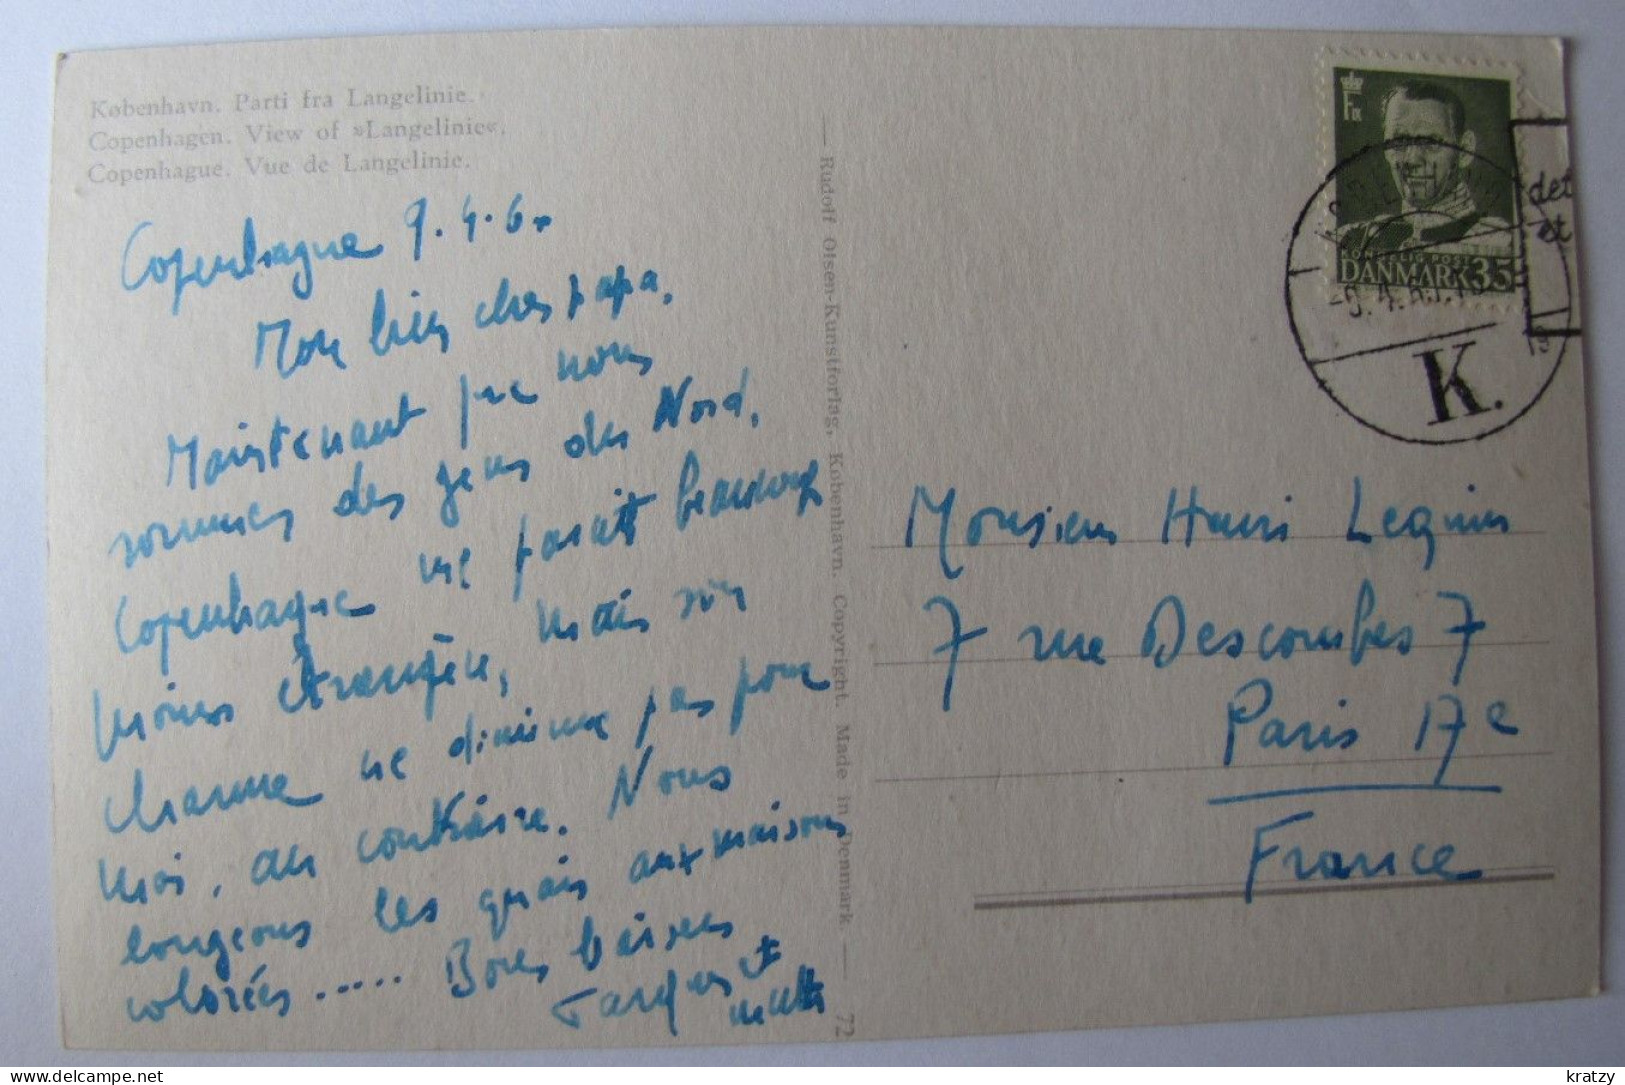 København. Parti fra Langelinie.
Copenhagen. View of »Langelinie«.
Copenhague. Vue de Langelinie.
Copenhague 9.4.60
Mon bien cher papa,
Maintenant que nous
sommes des gens du Nord,
Copenhague me paraît beaucoup
moins étrangère, mais son
charme ne diminue pas pour
moi, au contraire. Nous
longeons les quais aux maisons
colorées ..... Bons baisers
Jacques et
— Rudolf Olsen-Kunstforlag, København. Copyright. Made in Denmark — 72
F IX
KONGELIG POST
DANMARK 35
-9.4.60
K.
det
et
Monsieur Henri Lequin
7 rue Descombes 7
Paris 17e
France
kratzy